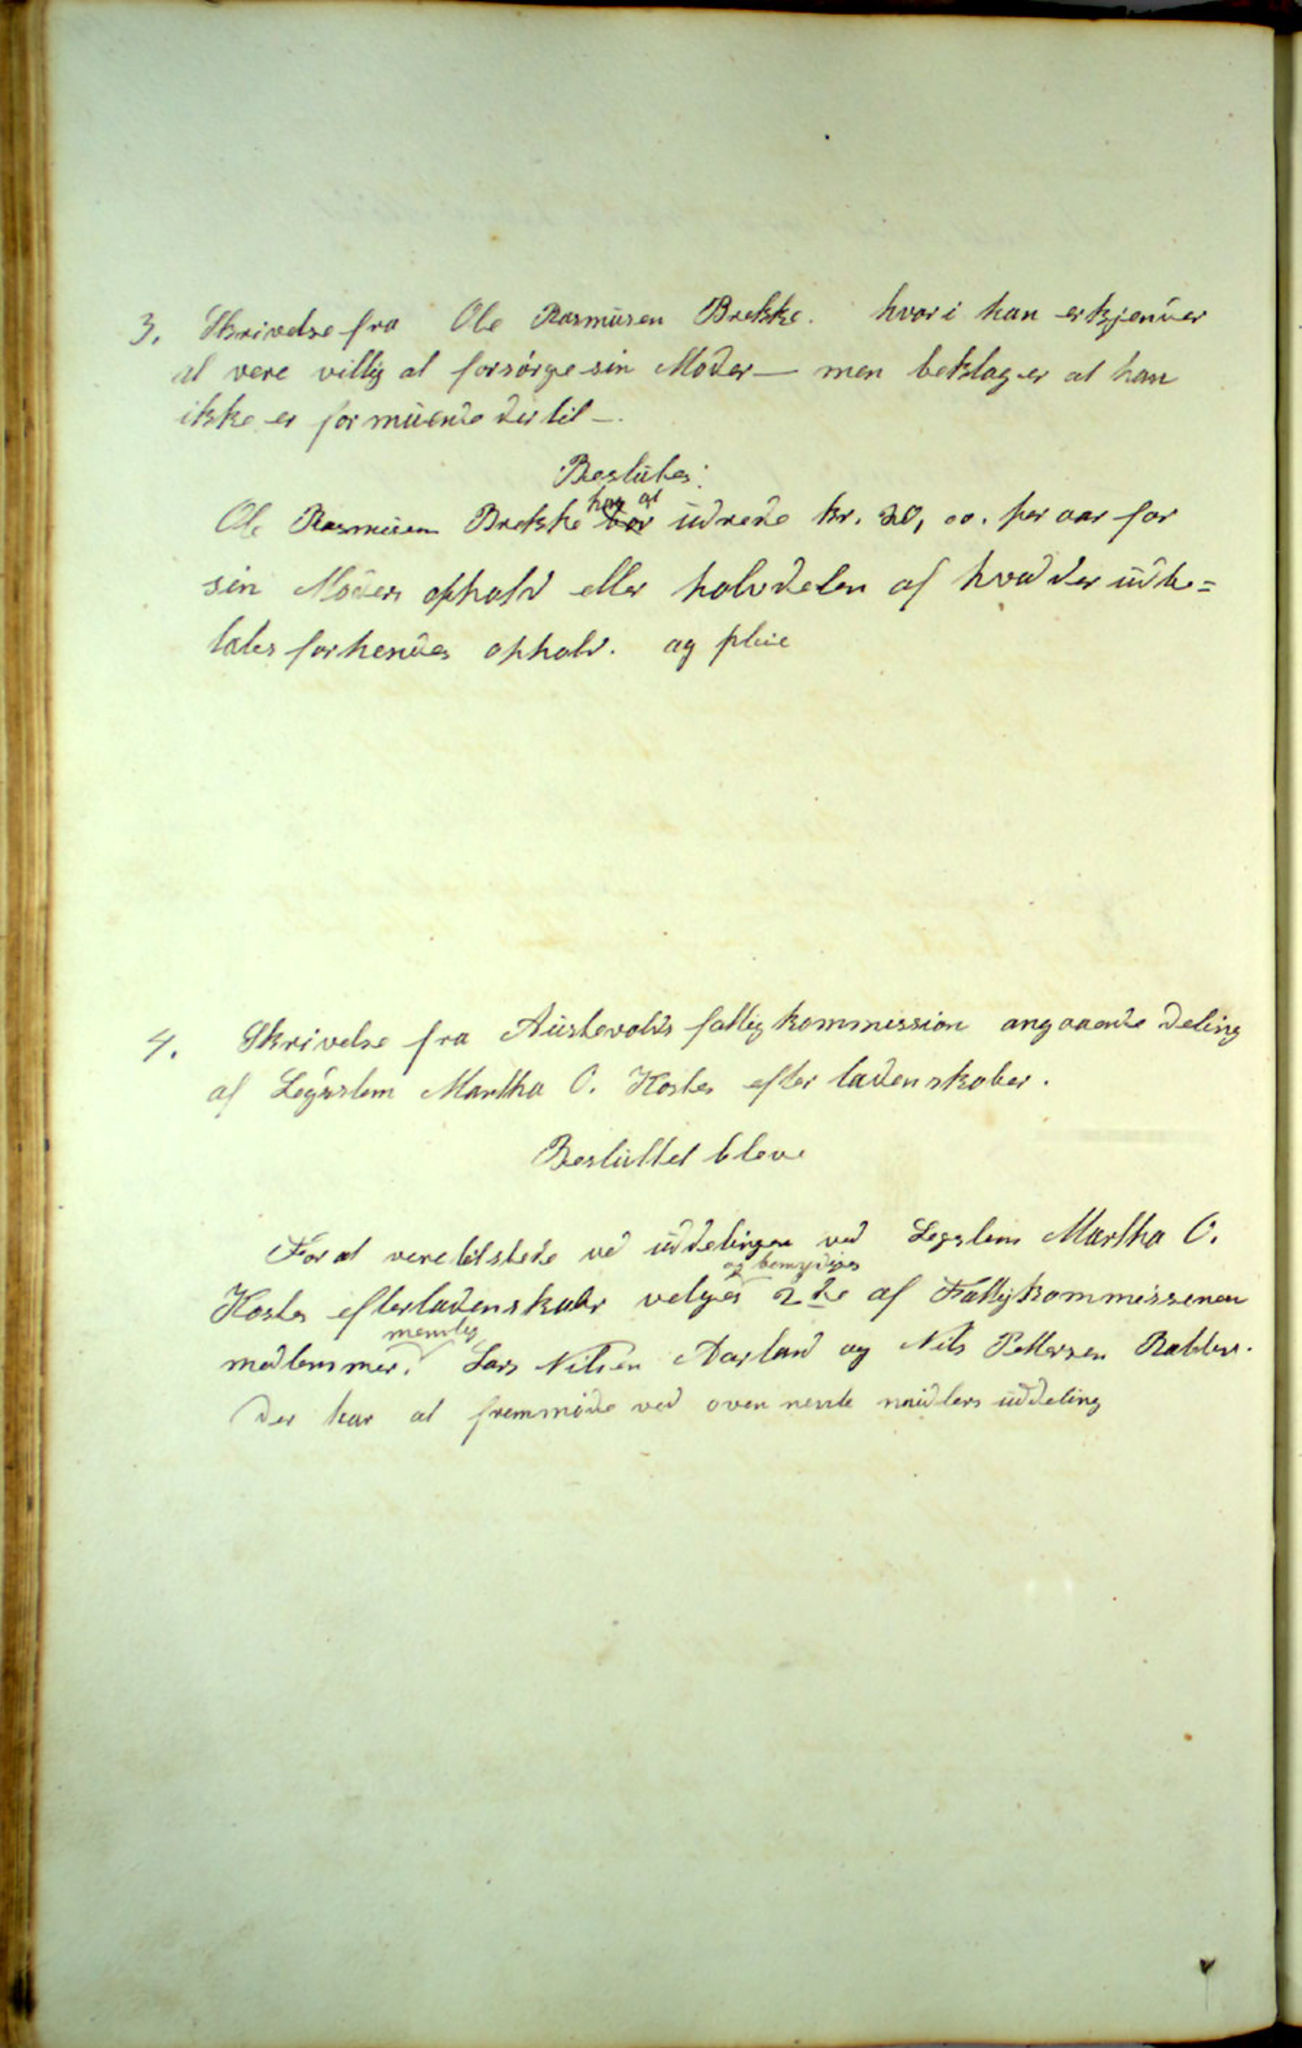 3. Skrivelse fra Ole Rasmusen Brekke. hvori han erkjender
at vere villig at forsørge sin Moder — men beklager at han
ikke er formuende dertil —.
Beslutes:
har at
Ole Rasmusen Brekke bør udrede kr. 20,00. per aar for
sin Moders ophold eller halvdelen af hvad der udbe=
tales for hendes ophold. og pleie
4. Skrivelse fra Austevolds fattigkommission angaaende deling
af Legdslem Martha O. Kostes efterladenskaber.
Besluttet blev
For at vere tilstede ved uddelingen ved Legslem Martha O.
og bemyndiges
Kostes efterladenskabr velges 2de af Fattigkommissenen
nemlig
medlemmer. Lars Nilsen Aarland og Nils Pettersen
der har at fremmøde ved ovennente midlers uddeling